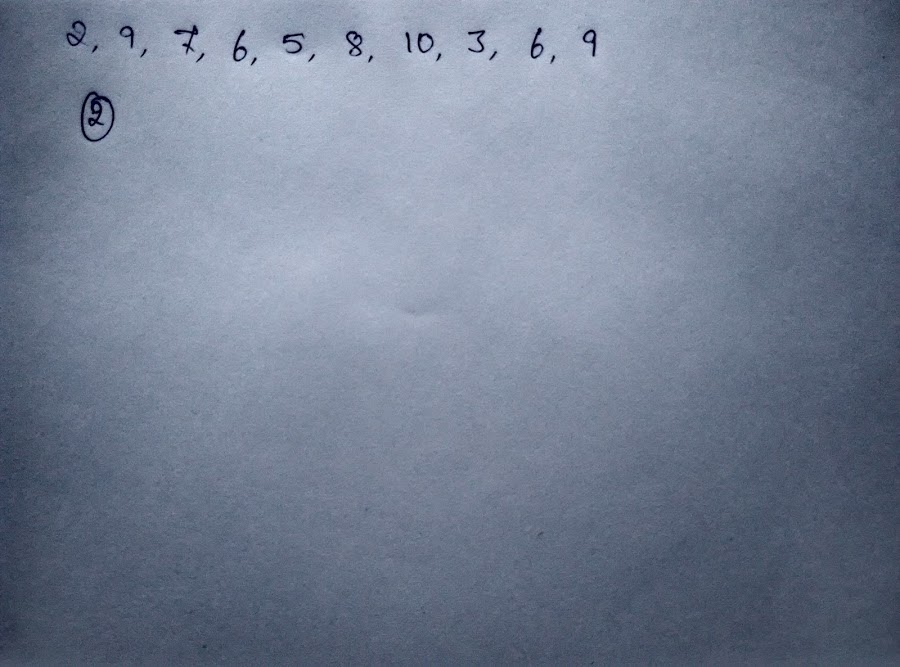 2, 9, 7, 6, 5, 8, 10, 3, 6, 9
2